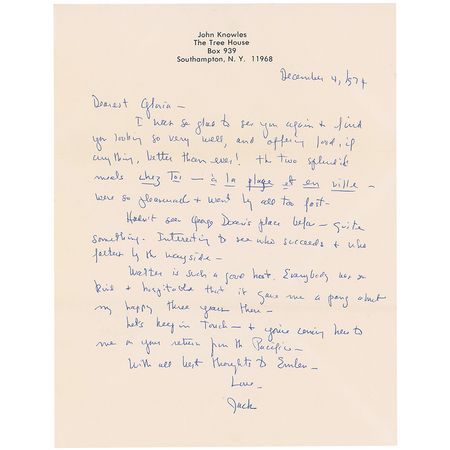 John Knowles
The Tree House
Box 939
Southampton, N. Y. 11968
December 4, 1974
Dearest Gloria —
I was so glad to see you again & find
you looking so very well, and offering food, if
anything, better than ever! The two splendid
meals chez Toi — à la plage et en ville —
were so glamorous & went by all too fast —
Hadn't seen George place before — quite
something. Interesting to see who succeeds & who
falters by the wayside —
Walter is such a good host. Everybody was so
kind & hospitable that it gave me a pang about
my happy three years there —
Let's keep in Touch — & you're coming here to
me on your return from the Pacific —
With all best thoughts to
Love —
Jack